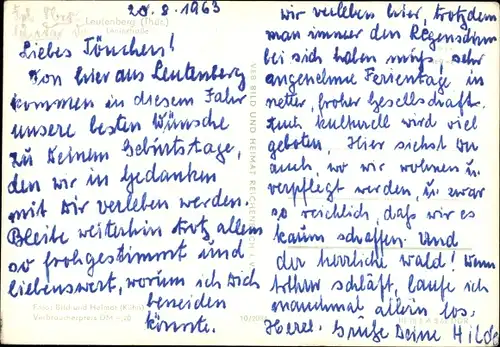 20.8.1963
Leutenberg (Thür.)
Liebes Tönchen!
Von hier aus Leutenberg
kommen in diesem Jahr
unsere besten Wünsche
zu Deinem Geburtstage,
den wir in Gedanken
mit Dir verleben werden.
Bleibe weiterhin trotz allem
so frohgestimmt und
liebenswert, worum ich Dich
beneiden
könnte.
Foto: Bild und Heimat (Kühn)
Verbraucherpreis DM -,20
VEB BILD UND HEIMAT REICHENBACH i. V.
wir verleben hier, trotzdem
man immer den Regenschirm
bei sich haben muß, sehr
angenehme Ferientage in
netter, froher Gesellschaft.
Auch kulturell wird viel
geboten. Hier siehst Du
auch wo wir wohnen u.
verpflegt werden, u. zwar
so reichlich, daß wir es
kaum schaffen. Und
der herrliche Wald! Wenn
schläft, laufe ich
manchmal allein los.
Herzl. Grüße Deine Hilde